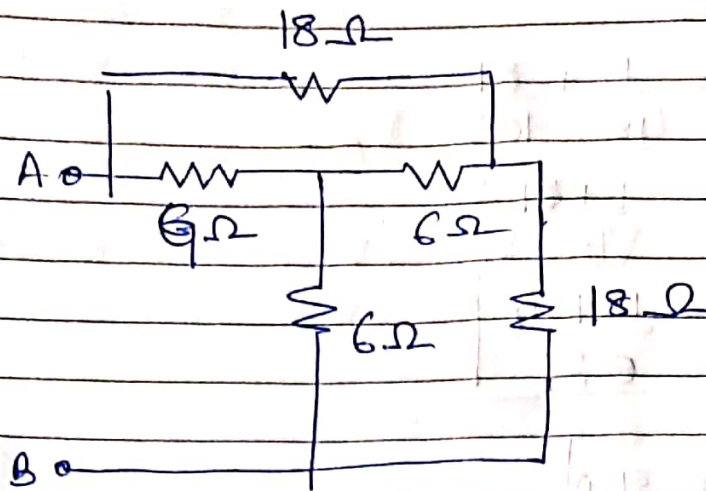 18 Ω
A
6 Ω
6 Ω
18 Ω
B